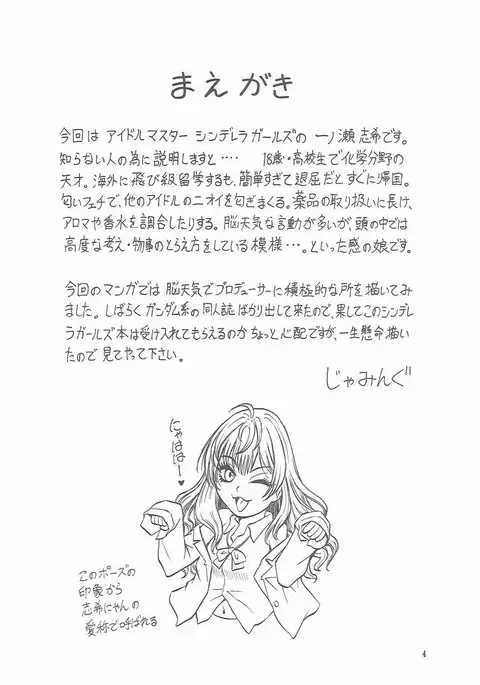 まえがき
今回は アイドルマスター シンデレラガールズの 一ノ瀬 志希です。
知らない人の為に説明しますと‥‥ 18歳・高校生で化学分野の
天才。海外に飛び級留学するも、簡単すぎて退屈だとすぐに帰国。
匂いフェチで、他のアイドルのニオイを匂ぎまくる。薬品の取り扱いに長け、
アロマや香水を調合したりする。脳天気な言動が多いが、頭の中では
高度な考え・物事のとらえ方をしている模様…。といった感の娘です。
今回のマンガでは 脳天気でプロデューサーに積極的な所を描いてみ
ました。しばらく ガンダム系の同人誌ばかり出して来たので、果してこのシンデレ
ラガールズ本は受け入れてもらえるのか ちょっと心配ですが、一生懸命描い
たので 見てやって下さい。
じゃみんぐ
にゃはは～♥
このポーズの
印象から
志希にゃんの
愛称で呼ばれる
4